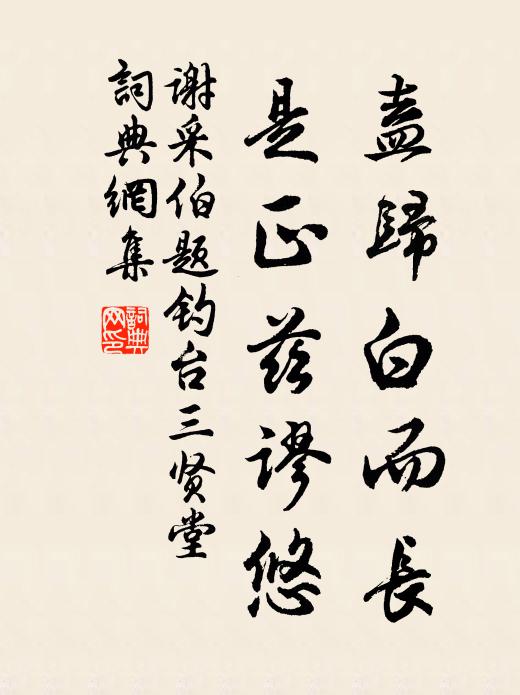 盍歸白而長
是正兹谬悠
谢采伯题钓台三贤堂
詞典網集
詞典网印